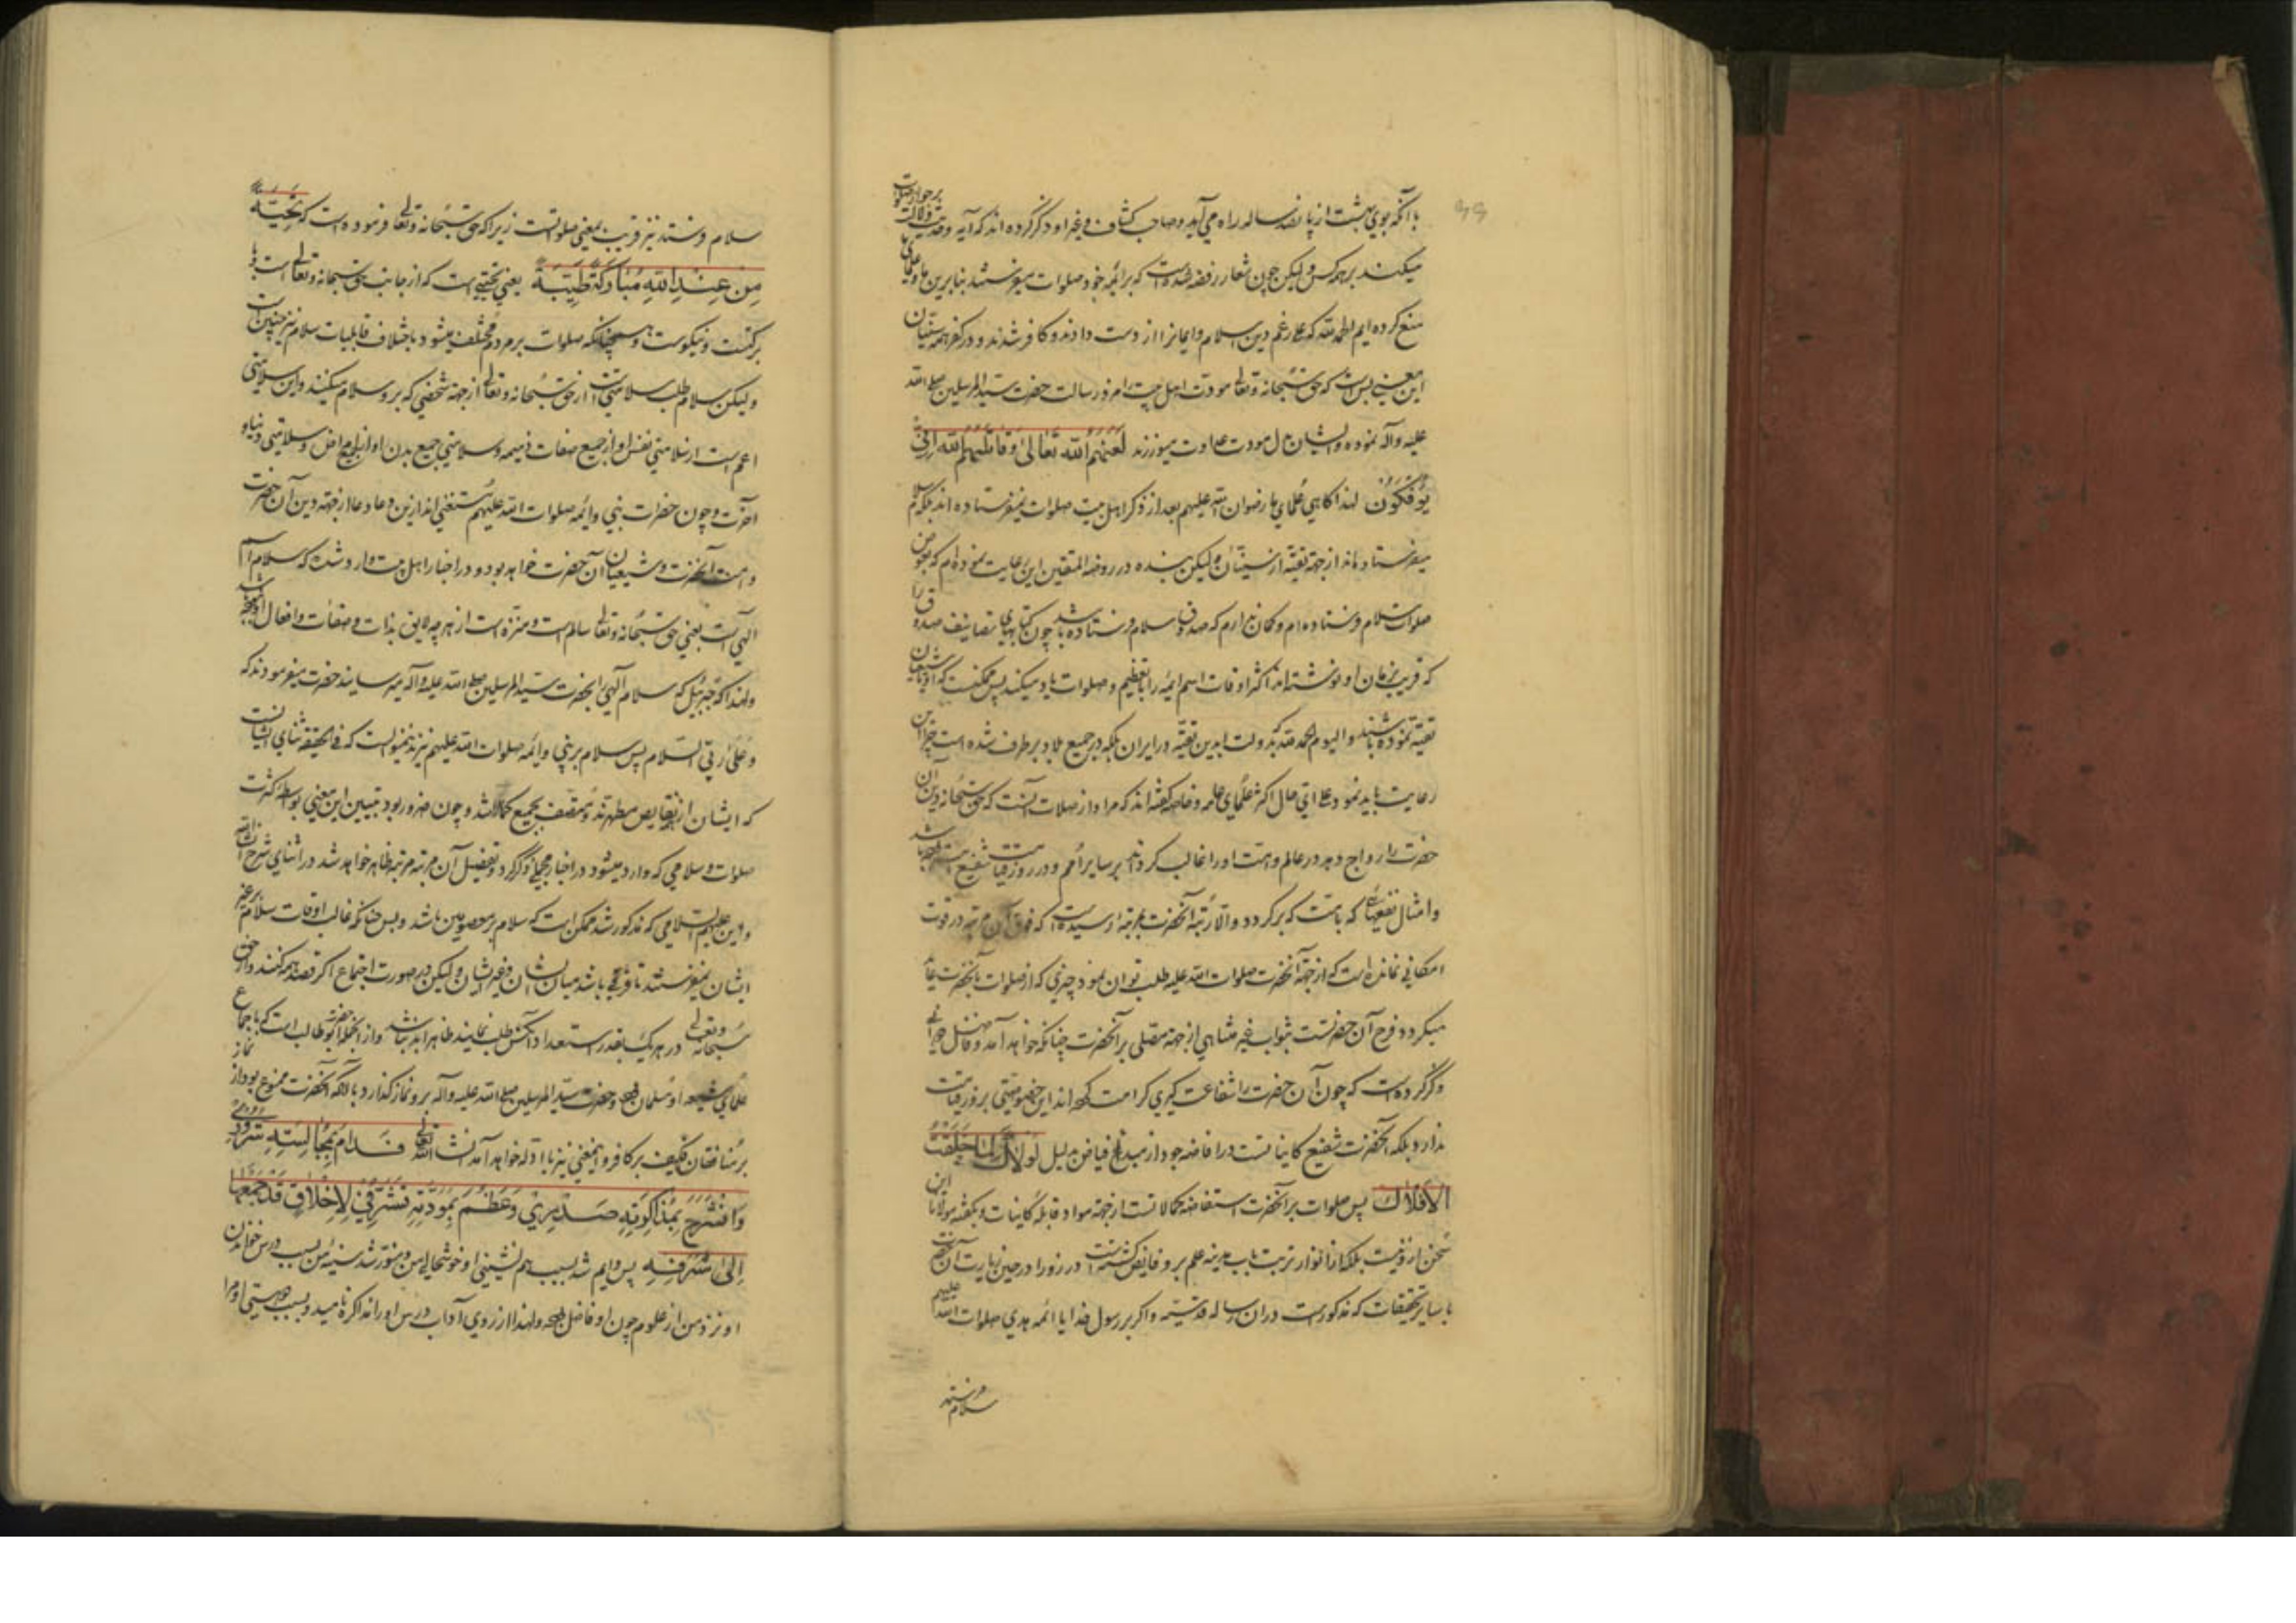 با آنکه بوی بهشت از پانصد ساله راه می آید و صاحب کشاف و غیر او ذکر کرده اند که آیه و حدیث دلالت بر جواز صلوات
میکند بر همه کس و لیکن چون شعار رفضه شده است که بر ائمه خود صلوات میفرستند بنابرین ما و علمای ما
منع کرده ایم الحمد لله که علی رغم دین اسلام و ایمان را از دست دادند و کافر شدند و در کفر همه سنیان
این معنی بس است که حق سبحانه و تعالی مودت اهل بیت را مزد رسالت حضرت سید المرسلین صلی الله
علیه و آله نموده و ایشان بدل مودت عداوت میورزند لَعَنَهُمُ الله تَعَالیٰ وَقَاتَلَهُمُ الله اَنّیٰ
یُؤْفَکُوْنَ لهذا گاهی علمای ما رضوان الله علیهم بعد از ذکر اهل بیت صلوات نمیفرستاده اند بلکه سلام
میفرستاده اند از جهة تقیه از سنیان و لیکن بنده در روضة المتقین این رعایت نموده ام که بعوض
صلوات سلام فرستاده ام و گمان ندارم که صدوق سلام فرستاده باشد چون کتابهای تصانیف صدوق را
که قریب بزمان او نوشته اند اکثر اوقات اسم ائمه را با تعظیم و صلوات یاد میکند پس ممکنست که
تقیه نموده باشند و الیوم الحمد لله که بدولت ابدین تقیه در ایران بلکه در جمیع بلاد بر طرف شده است چرا این
رعایت باید نمود علی ای حال اکثر علمای عامه و خاصه گفته اند که مراد از صلات آنست که حق سبحانه دین آن
حضرت را رواج دهد در عالم و امت او را غالب گرداند بر سایر امم و در روز قیامت شفیع امت باشد
و امثال نفعهائی که بامت برگردد و الا رتبه آنحضرت بمرتبه رسیده است که فوق آن مرتبه در قوت
امکانی نمانده است که از جهة آنحضرت صلوات الله علیه طلب توان نمود چیزی که از صلوات بآنحضرت عاید
میگردد فرح آن حضرتست بثواب غیر متناهی از جهة مصلی بر آنحضرت چنانکه خواهد آمد و فاضل
ذکر کرده است که چون آن حضرت را شفاعت کبری کرامت کرده اند این خصوصیتی بروز قیامت
ندارد بلکه آنحضرت شفیع کاینات است در افاضه جود از مبدء فیاض بدلیل لَوْلَاکَ لَمَا خَلَقْتُ
الْاَفْلَاکَ پس صلوات بر آنحضرت استفاضه کمالاتست از جهة مواد قابله کاینات و بگفته مولانا این
سخن ازو نیست بلکه از انوار تربت باب مدینه علم برو فایض گشته است در زورا در حین زیارت آن حضرت
با سایر تحقیقات که مذکور است در ان رساله قدسیه و اگر بر رسول خدا یا ائمه هدی صلوات الله علیهم
سلام فرستند
سلام فرستند نیز قریب بمعنی صلواتست زیرا که حق سبحانه و تعالی فرموده است که تَحِیَّةً
مِنْ عِنْدِ اللهِ مُبَارَکَةً طَیِّبَةً یعنی تحیتی است که از جانب حق سبحانه و تعالی است با
برکتست و نیکوست و همچنانکه صلوات بر مردم مختلف میشود باختلاف قابلیات سلام نیز چنین است
و لیکن سلام طلب سلامتی است از حق سبحانه و تعالی از جهة شخصی که برو سلام میکنند و این سلامتی
اعم است از سلامتی نفس او از جمیع صفات ذمیمه و سلامتی جمیع بدن او از جمیع امراض و سلامتی دنیا و
آخرت و چون حضرات نبی و ائمه صلوات الله علیهم مستغنی اند ازین دعا دعا از جهة دین آن حضرت
و امت آنحضرت و شیعیان آن حضرت خواهد بود و در اخبار اهل بیت وارد شده که سلام اسم
الهی است یعنی حق سبحانه و تعالی سالم است و منزه است از هر چه لایق بذات و صفات و افعال او نباشد
و لهذا که جبرئیل که سلام الهی را بحضرت سید المرسلین صلی الله علیه و آله میرسانید حضرت میفرمودند که
وَ عَلی رَبّی السّلام پس سلام بر نبی و ائمه صلوات الله علیهم نیز بدین منوالست که فی الحقیقه ثنای ایشانست
که ایشان از نقایص مطهرند و متصف بجمیع کمالات و چون ضرور بود تبیین این معنی بواسطه کثرت
صلوات و سلامی که وارد میشود در اخبار مجملی ذکر کرد و تفصیل آن مرتبه مرتبه ظاهر خواهد شد در اثنای شرح ان شاء الله
و این علیهم السلامی که مذکور شد ممکن است که سلام بر معصومین باشد و بس چنانکه غالب اوقات سلام بر غیر
ایشان نمیفرستند تا فرقی باشد میان ایشان و غیر ایشان و لیکن در صورت اجتماع اگر قصد همه کنند و از حق
سبحانه و تعالی در هر یک بقدر استعداد آنکس طلب نمایند ظاهرا بد نباشد و از آنجمله حضرت ابو طالب است که باجماع
علمای شیعه او مسلمان بوده و حضرت سید المرسلین صلی الله علیه و آله برو نماز گذارد با آنکه آنحضرت ممنوع بود از نماز
بر منافقان فکیف بر کافر و این معنی نیز با ادله خواهد آمد ان شاء الله تعالی فَدَامَ بِمُجَالَسَتِهِ سُرُوْرِیْ
وَانْشَرَحَ بِمُذَاکَرَتِهِ صَدْرِیْ وَعَظُمَ بِمَوَدَّتِهِ تَشَرُّفِیْ لِاَخْلَاقٍ قَدْ جَمَعَهَا
اِلیٰ شَرَفِهِ پس دایم شد بسبب هم نشینی او خوشحالی من و منور شد سینه من بسبب درس خواندن
او نزد من از علوم چون او فاضل بوده و لهذا از روی آداب درس او را مذاکره نامید و بسبب دوستی او مرا